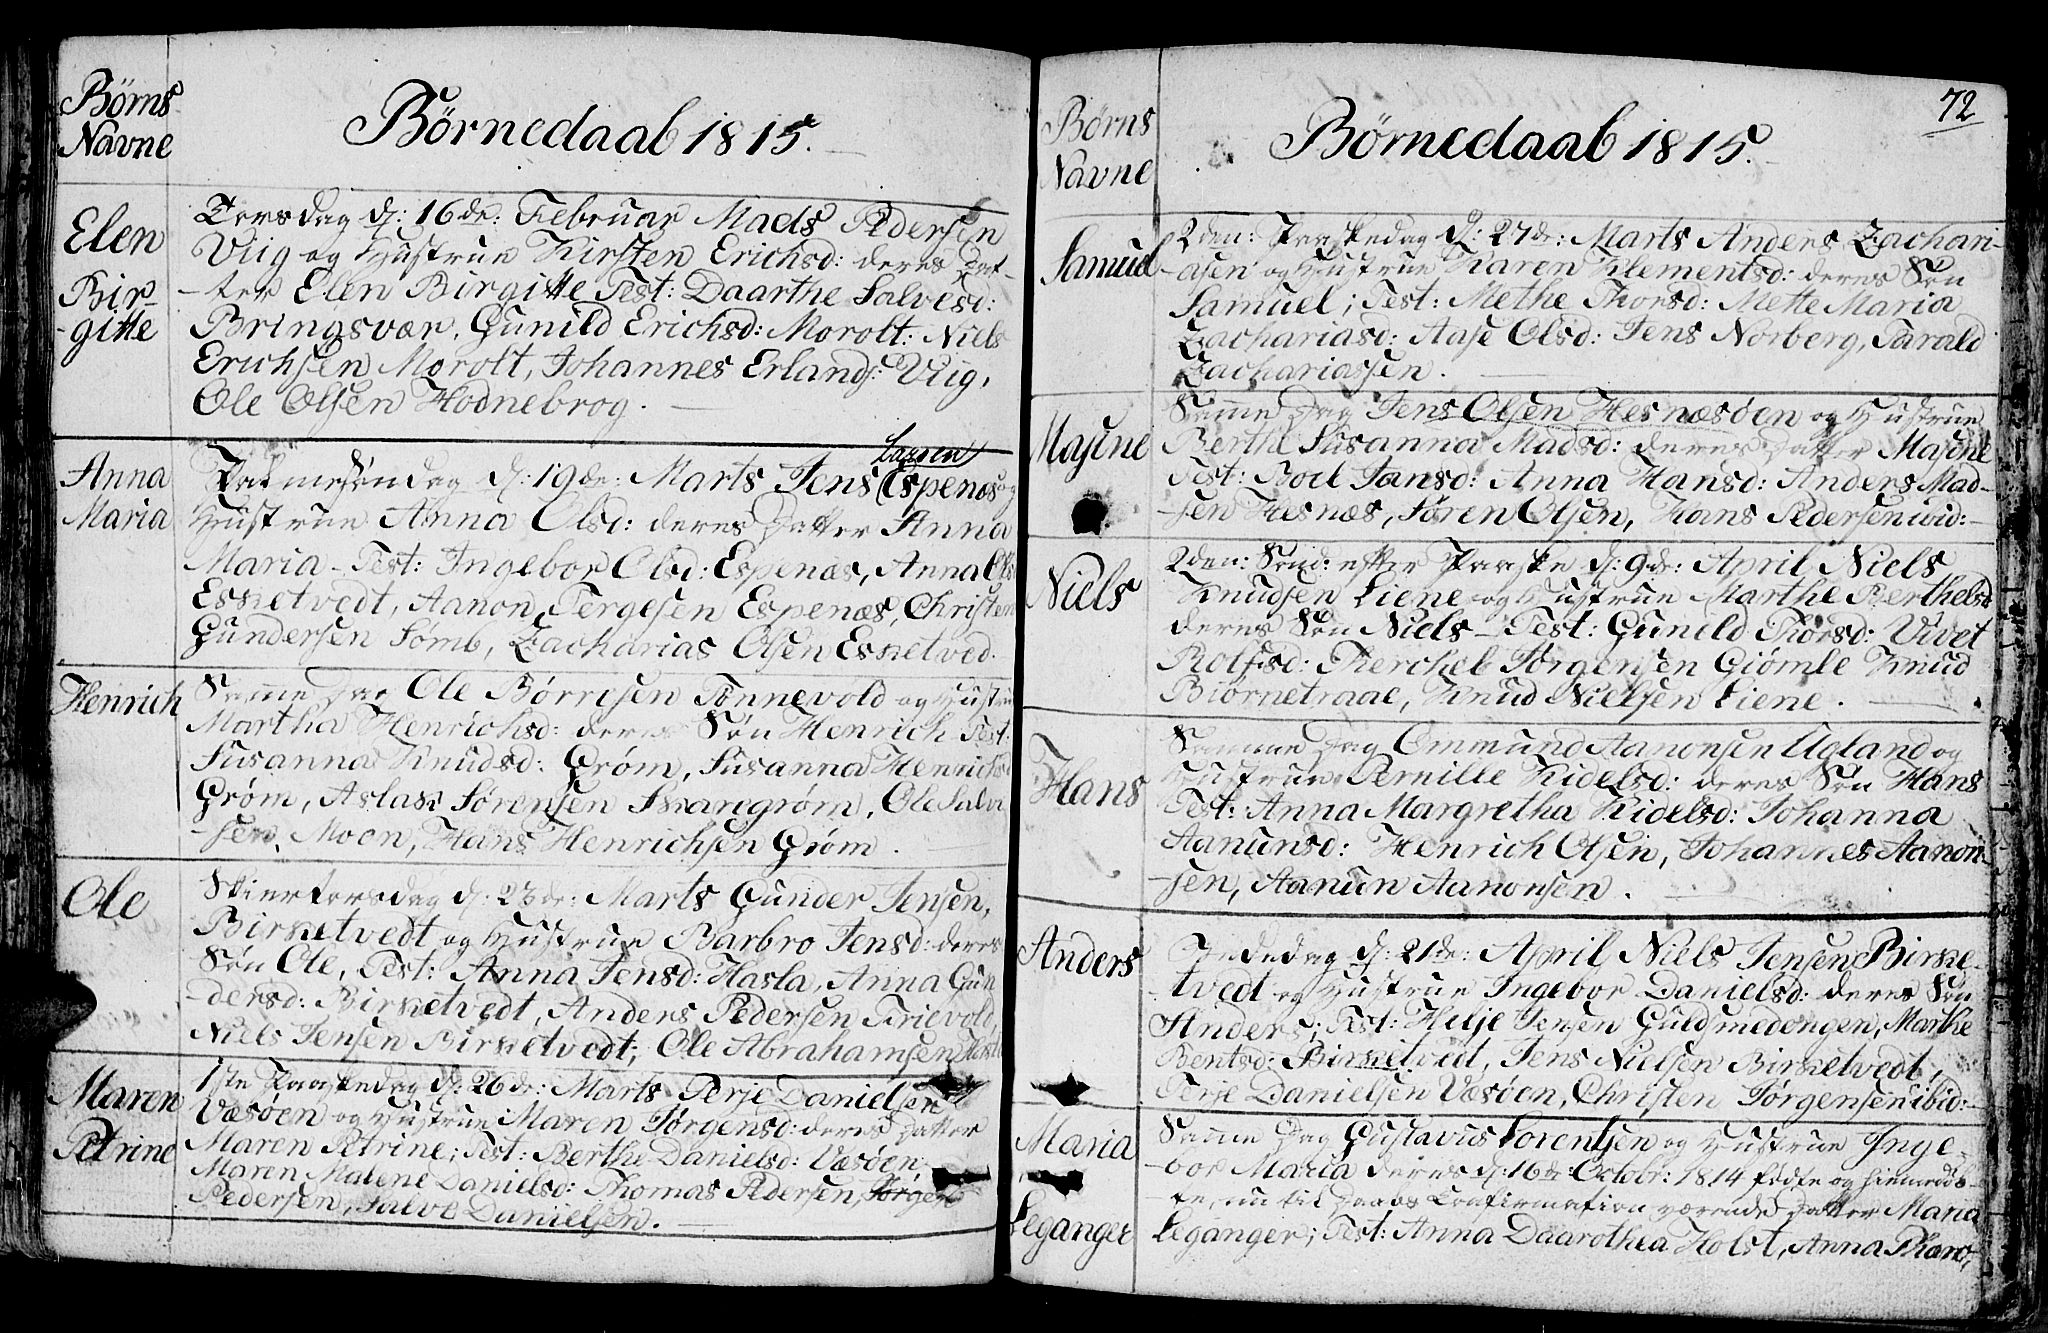 Børns
Navne
Børnedaab 1815.
Elen
Bir-
-gitte
Torsdag d: 16de: Februar Mads Pedersen
Viig og Hustrue Kirsten Erichsd: deres Dat-
-ter Elen Birgitte Test: Daarthe Salvesd:
Bringsvær, Gunild Erichsd: Morolt: Niels
Erichsen Morolt, Johannes Erlands: Viig,
Ole Olsen Hodnebrog.
Anna
Maria
Palmesøndag d: 19de: Marts Jens Larsen Espenæs og
Hustrue Anna Olsd: deres Datter Anna
Maria - Test: Ingebor Olsd: Espenæs, Anna Ols
Esketvedt, Aanon Tergesen Espenæs, Christen
Gundersen Sømb, Zacharias Olsen Esketved.
Henrich
Samme Dag Ole Børrisen Tønnevold og Hustru
Martha Henrichsd: deres Søn Henrich Test:
Susanna Knudsd: Grøm, Susanna Henrichsd
Grøm, Aslak Sørensen Svarigrøm, Ole Salve
-sen Moen, Hans Henrichsen Grøm.
Ole
Skiertorsdag d: 23de: Marts Gunder Jensen,
Birketvedt og Hustrue Barbro Jensd: deres
Søn Ole, Test: Anna Jensd: Hasla, Anna Gun
-dersd: Birketvedt, Anders Pedersen Trievold,
Niels Jensen Birketvedt; Ole Abrahamsen Hasla
Maren
Petrine
1ste Paaskedag d: 26de: Marts Terje Danielsen
Væsøen og Hustrue Maren Jørgensd: deres Datter
Maren Petrine; Test: Berthe Danielsd: Væsøen
Maren Malene Danielsd: Thomas Pedersen, Jørgen
Pedersen, Salve Danielsen.
72
Børns
Navne
Børnedaab 1815.
Samuel
2den: Paaskedag d: 27de: Marts Anders Zachari-
-asen og Hustrue Karen Klementsd: deres Søn
Samuel; Test: Methe Thorsd: Mette Maria
Zachariasd: Aase Olsd: Jens Norberg, Tarald
Zachariassen.
Majene
Samme Dag Jens Olsen Hesnæsøen og Hustrue
Berthe Susanna Madsd: deres Datter Majene
Test: Boel Jansd: Anna Hansd: Anders Mad-
-sen Hesnæs, Søren Olsen, Hans Pedersen ibid:
Niels
2den: Sønd: efter Paaske d: 9de: April Niels
Knudsen Liene og Hustrue Marthe Berthelsd
deres Søn Niels - Test: Gunild Torsd: Vivet
Rolfsd: Kerchel Jørgensen Giømle Knud
Biørnetraae, Knud Nielsen Liene.
Hans
Samme Dag Ommund Aanonsen Ugland og
Hustrue Pernille Kidelsd: deres Søn Hans
Test: Anna Margretha Kidelsd: Johanna
Aanunsd: Henrich Olsen, Johannes Aanon-
-sen, Aanun Aanonsen.
Anders
Bededag d: 21de: April Niels Jensen Birke-
-tvedt og Hustrue Ingebor Danielsd: deres Søn
Anders; Test: Helje Jensen Guldsmedongen, Marthe
Bentsd: Birketvedt, Jens Nielsen Birketvedt,
Terje Danielsen Væsøen, Christen Jørgensen ibid:
Maria
Leganger
Samme Dag Gustavus Lorentsen og Hustrue Inge-
-bor Maria deres d: 16de: Octobr: 1814 fødte og hiemmedøb-
-te, nu til Daabs Confirmation værende Datter Maria
Leganger; Test: Anna Daarothea Holst, Anna Thano,